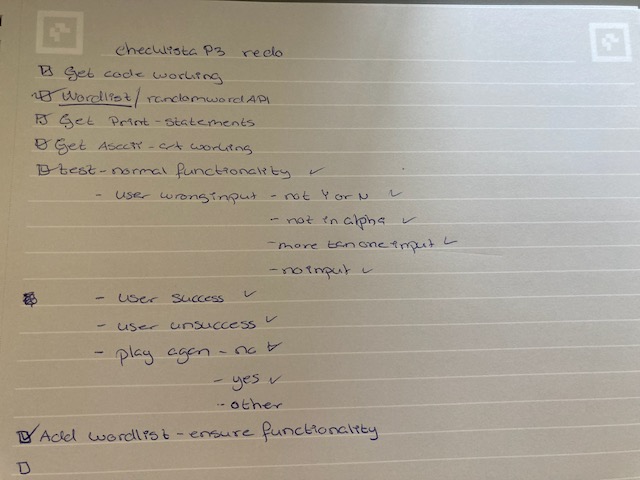 Checklista P3 redo
Get code working
Wordlist/randomwordAPI
Get Print-statements
Get Ascii-art working
test-normal functionality ✓
- user wronginput - not Y or N ✓
- not in alpha ✓
- more tan one input ✓
- no input ✓
- user success ✓
- user unsuccess ✓
- play agen - no ✓
- yes ✓
- other
Add wordlist - ensure functionality